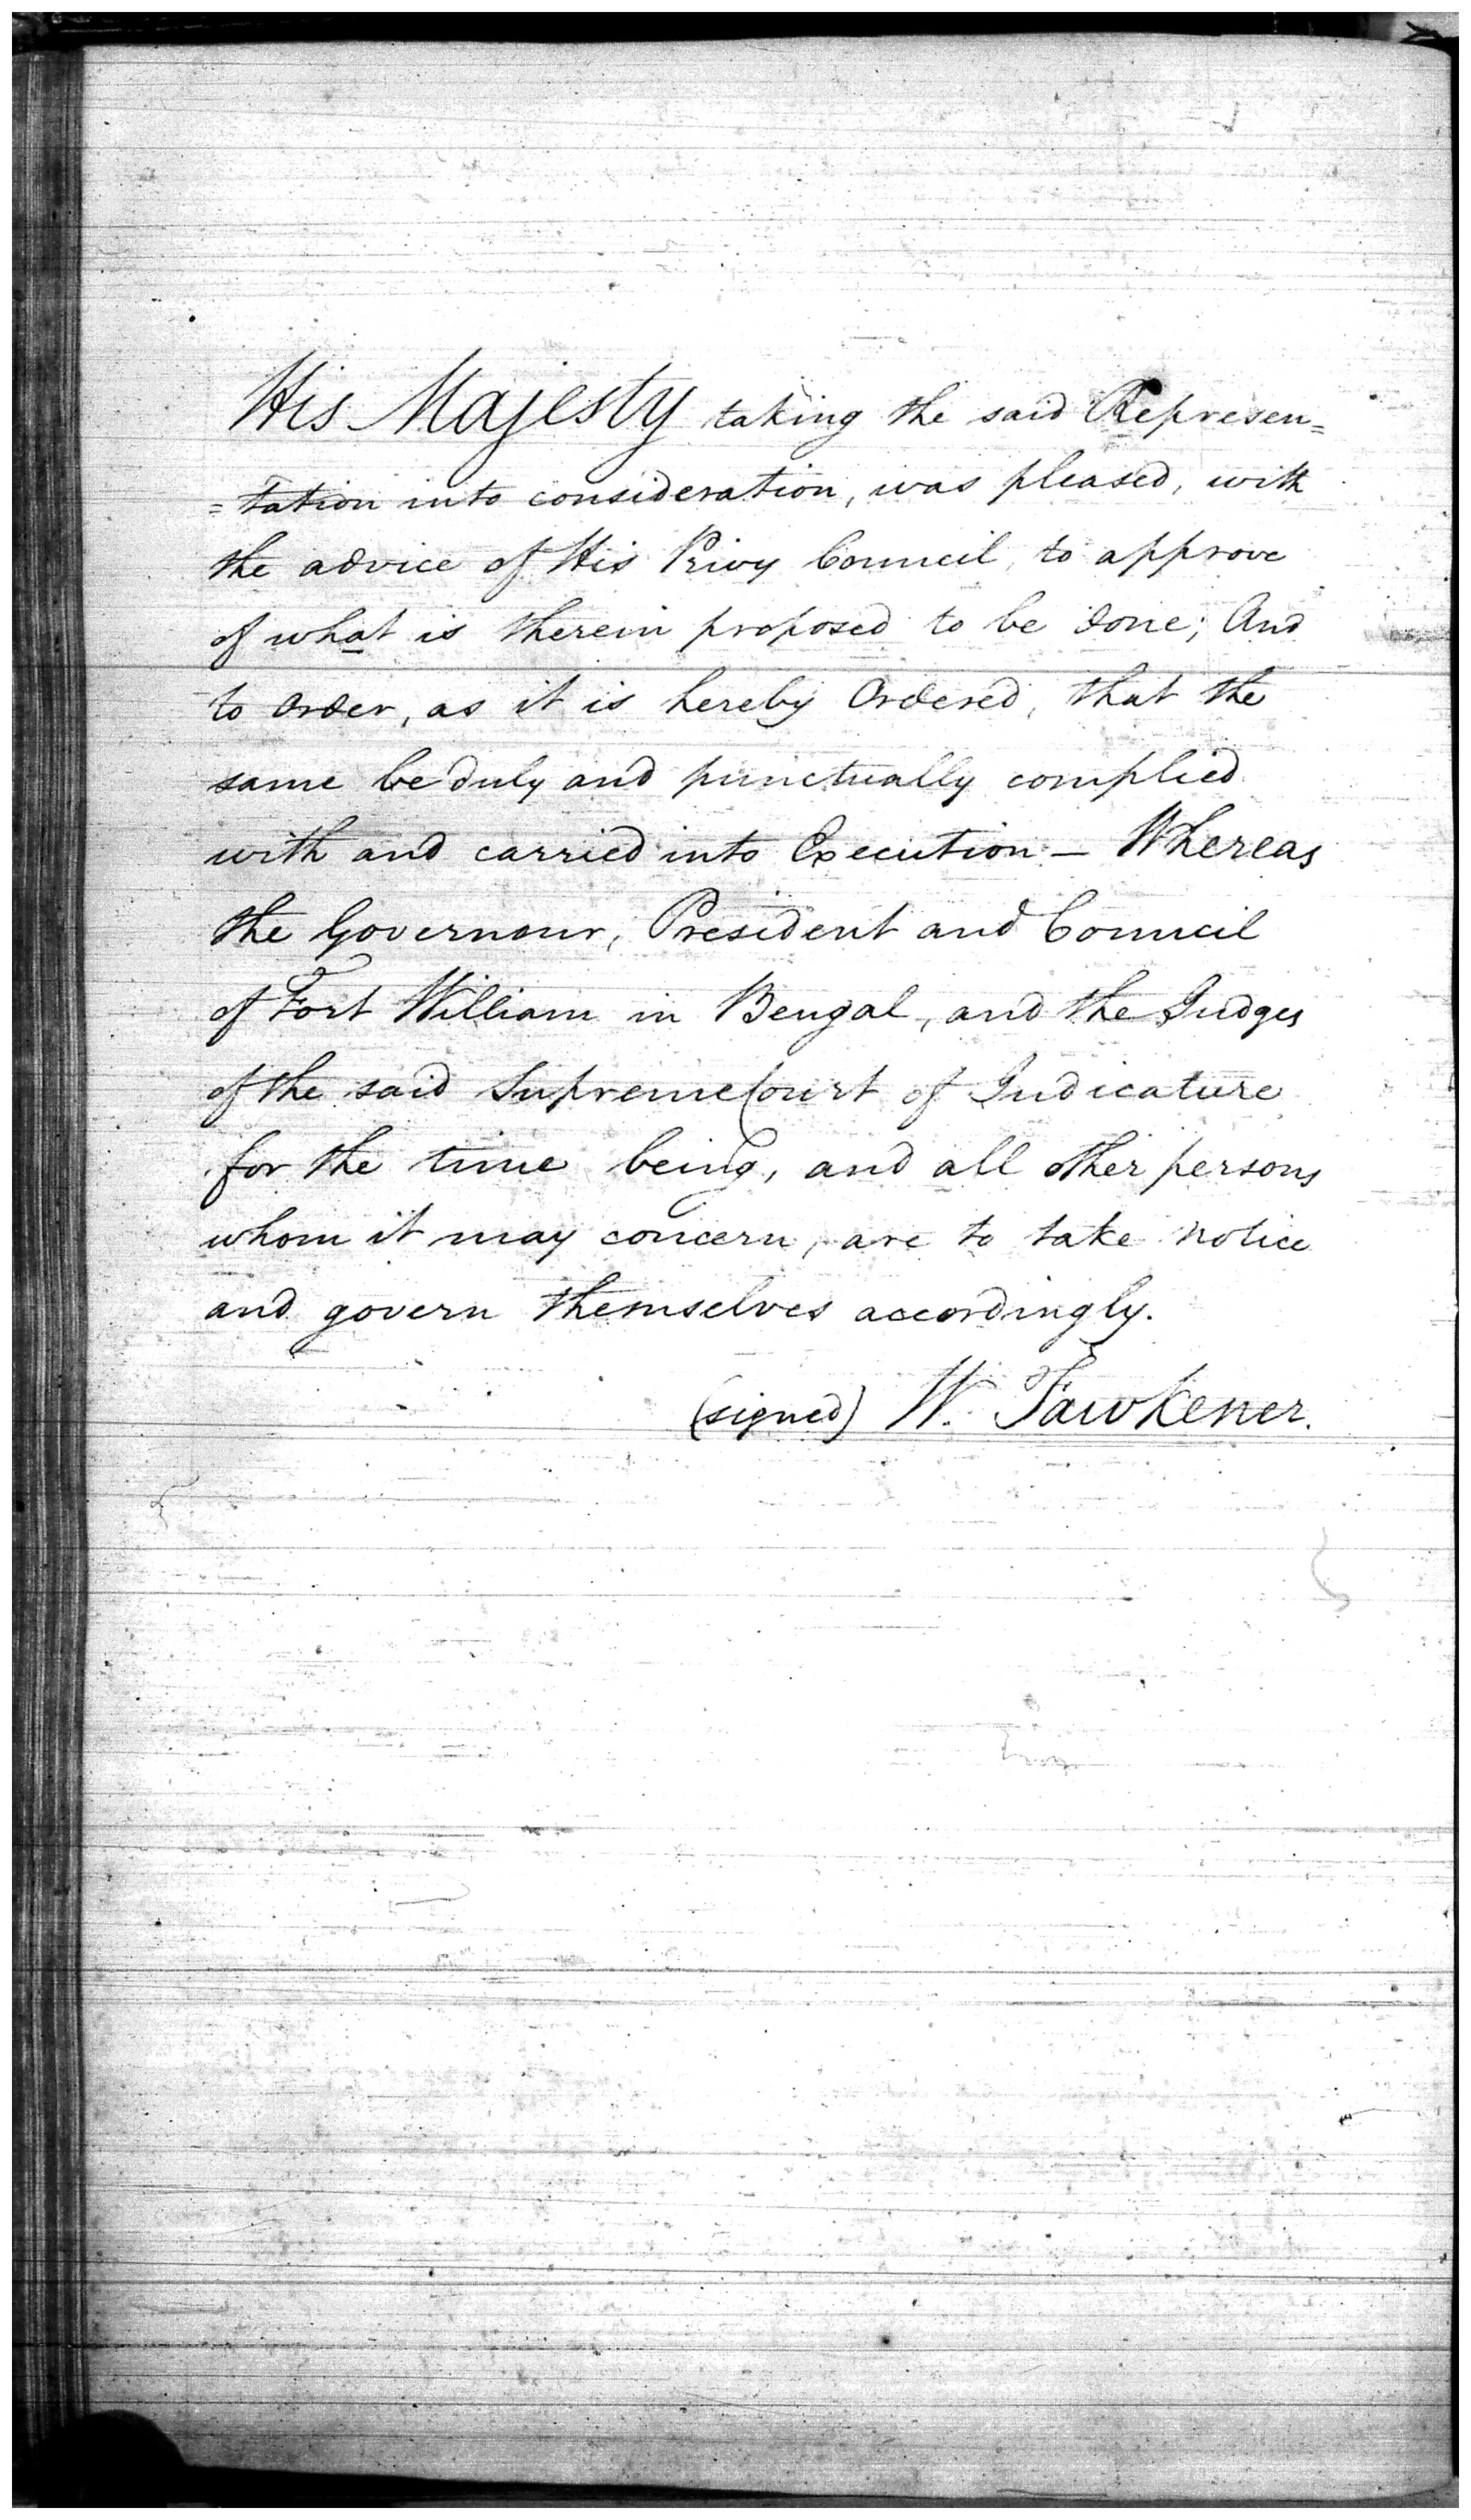 His Majesty taking the said Represen=
=tation into consideration, was pleased, with
the advice of His Privy Council, to approve
of what is therein proposed to be done; And
to Order, as it is hereby Ordered, that the
same be duly and punctually complied
with and carried into Execution — Whereas
the Governour, President and Council
of Fort William in Bengal, and the Judges
of the said Supreme Court of Judicature
for the time being, and all other persons
whom it may concern, are to take notice
and govern themselves accordingly.
(signed) W. Fawkener.